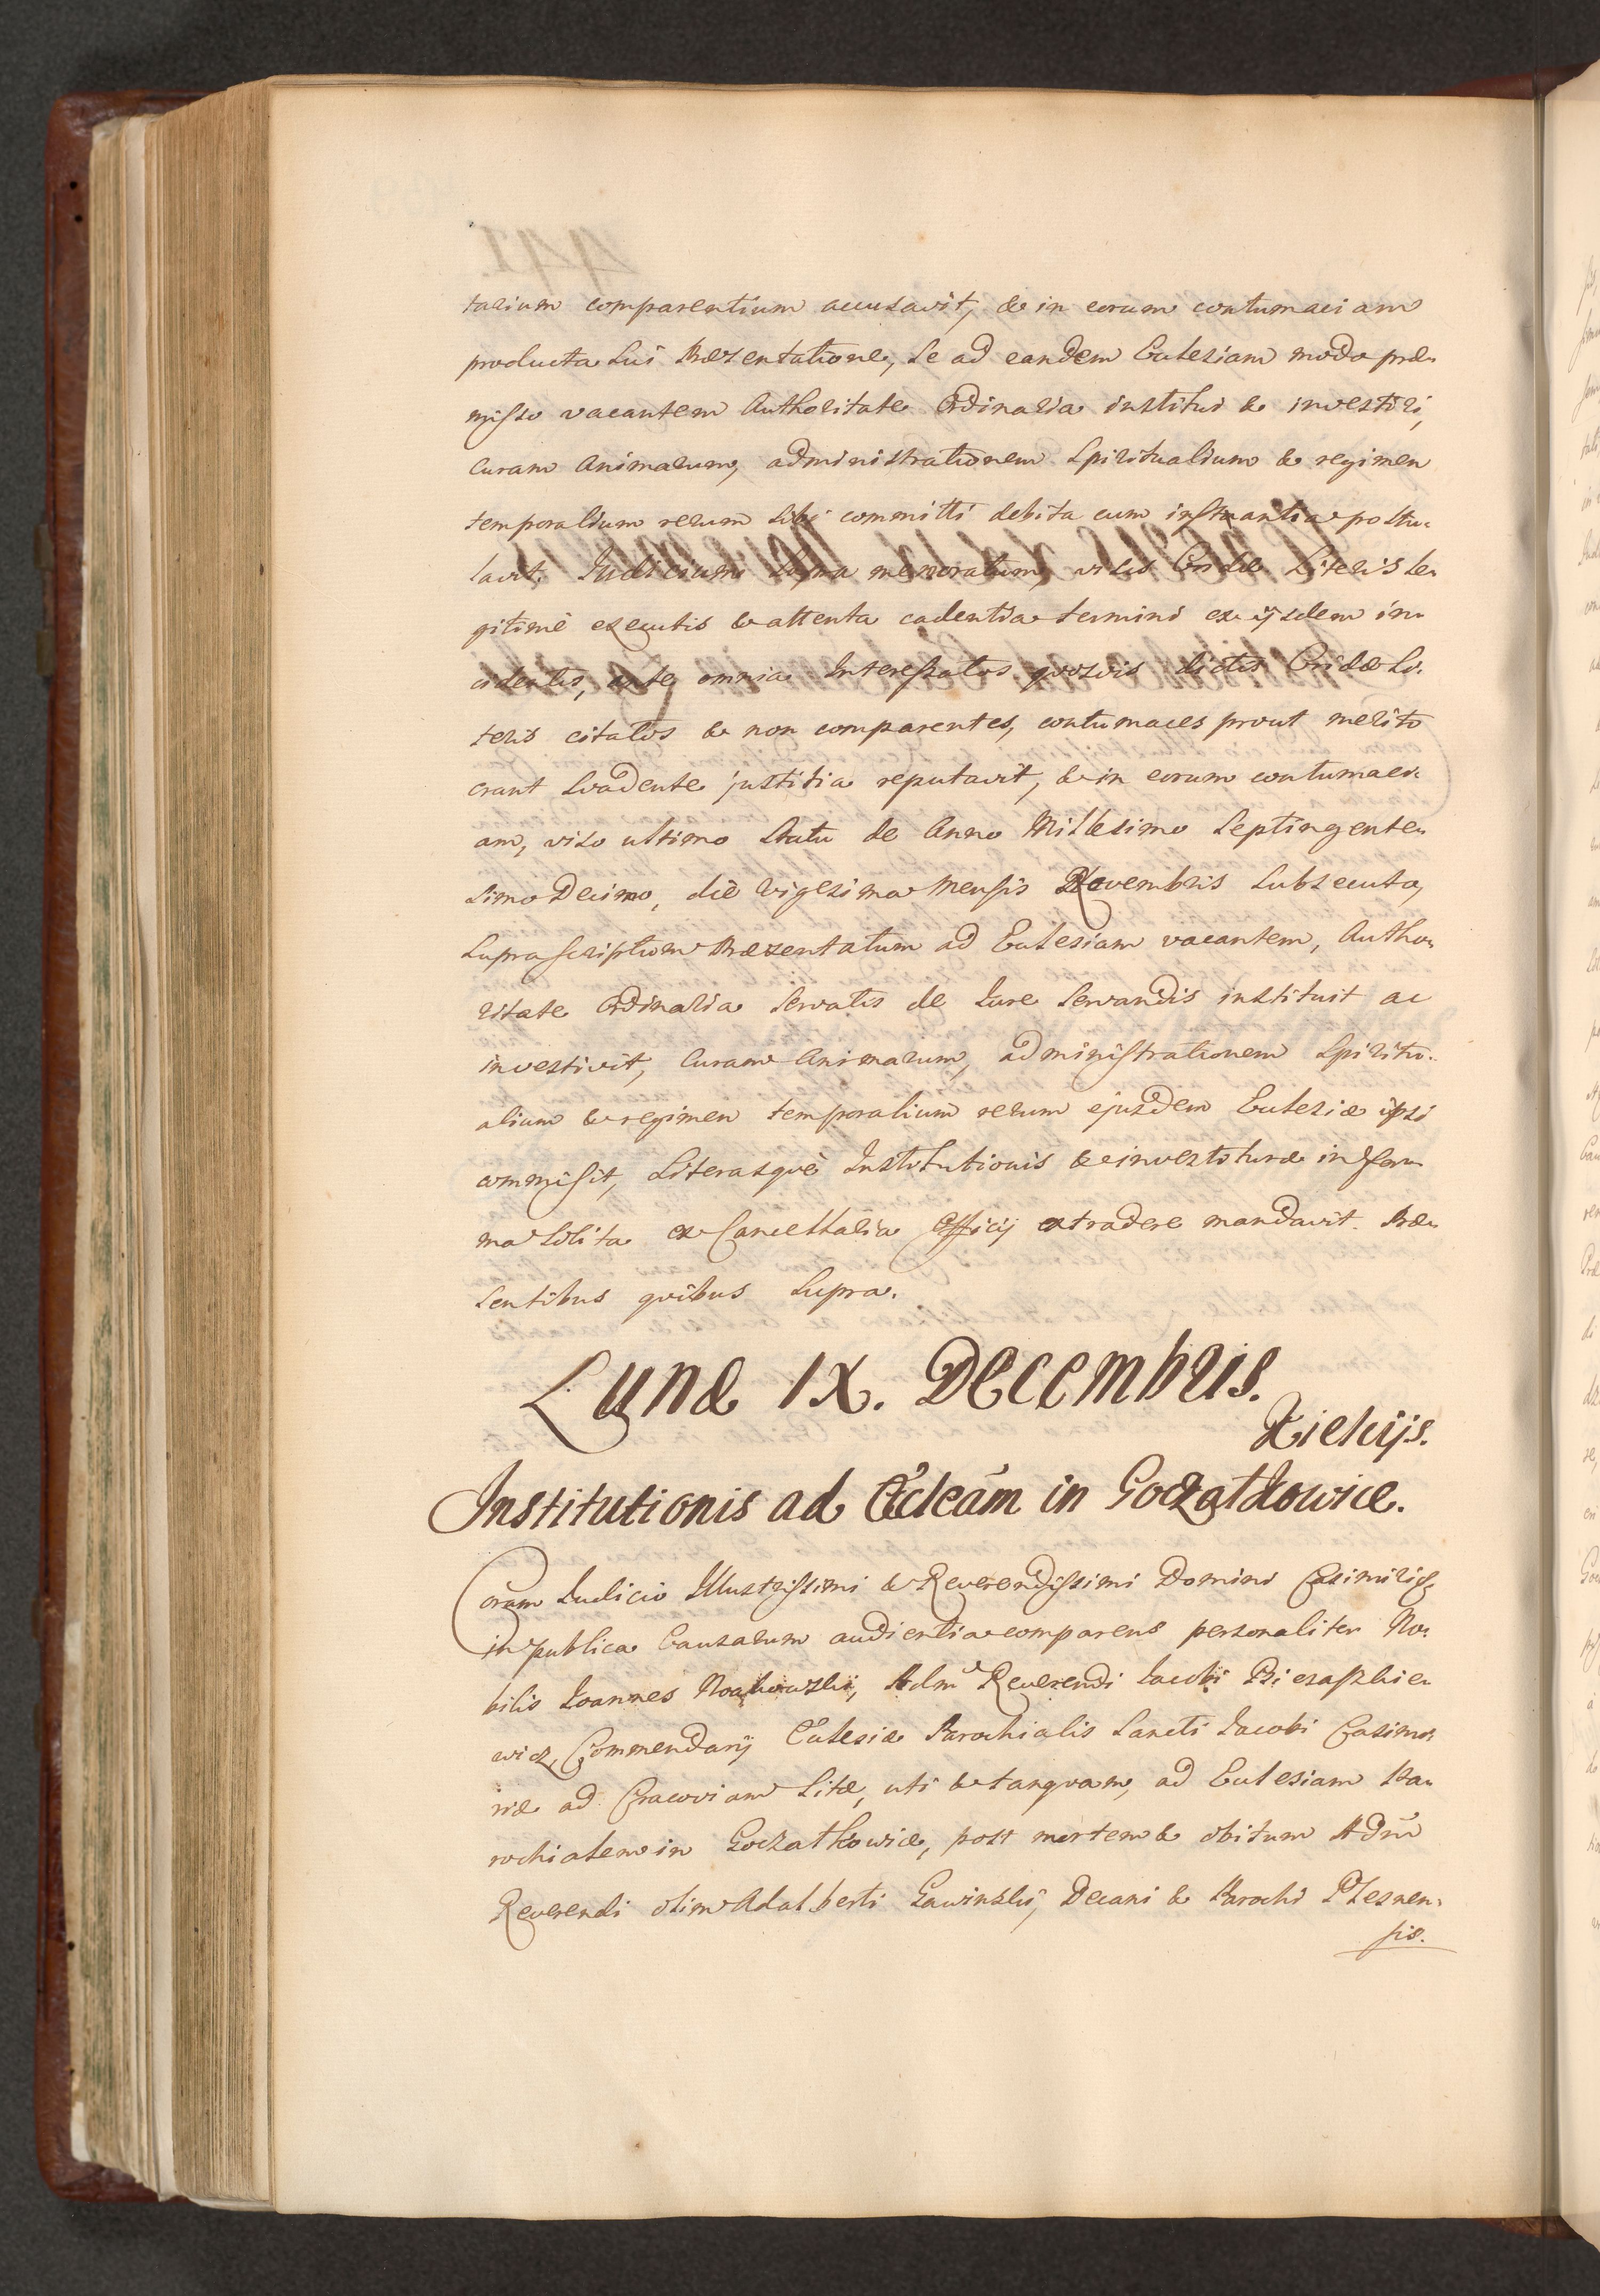 tarium comparentium accusavit, & in eorum contumaciam
producta sui Præsentatione, se ad eandem Ecclesiam modo præ-
misso vacantem Authoritate Ordinaria institui & investiri,
curam Animarum, administrationem Spiritualium & regimen
temporalium rerum sibi committi debita cum instantia postu-
lavit. Judicium supra memoratum, visis Cridæ Literis le-
gitimè executis & attenta cadentia termini ex ijsdem in-
cidentis, ante omnia Interessatos quosvis dictis Cridæ Li-
teris citatos & non comparentes, contumaces prout merito
erant svadente justitia reputavit, & in eorum contumaci-
am, viso ultimo Statu de Anno Millesimo Septingente-
simo Decimo, die Vigesima Mensis Novembris subsecuta,
suprascriptum Præsentatum ad Ecclesiam vacantem, Autho-
ritate Ordinaria servatis de Jure servandis instituit ac
investivit, Curam Animarum, administrationem Spiritu-
alium & regimen temporalium rerum ejusdem Ecclesiæ ipsi
commisit, Literasque Institutionis & investituræ in for-
ma solita ex Cancellaria Officij extradere mandavit. Præ-
sentibus quibus supra.
Lunæ IX. Decembris.
Kielcijs.
Institutionis ad Ecleam in Goczałkowice.
Coram Judicio Illustrissimi & Reverendissimi Domini Casimiri &
in publica Causarum audientia comparens personaliter No-
bilis Joannes Adm Reverendi Jacobi
wicz, Commendarij Ecclesiæ Parochialis Sancti Jacobi Casimi-
riæ ad Cracoviam sitæ, uti & tanquam, ad Ecclesiam Pa-
rochialem in Goczałkowice, post mortem & obitum Adm
Reverendi olim Adalberti Gawinski, Decani & Parochi Plesnen-
sis.